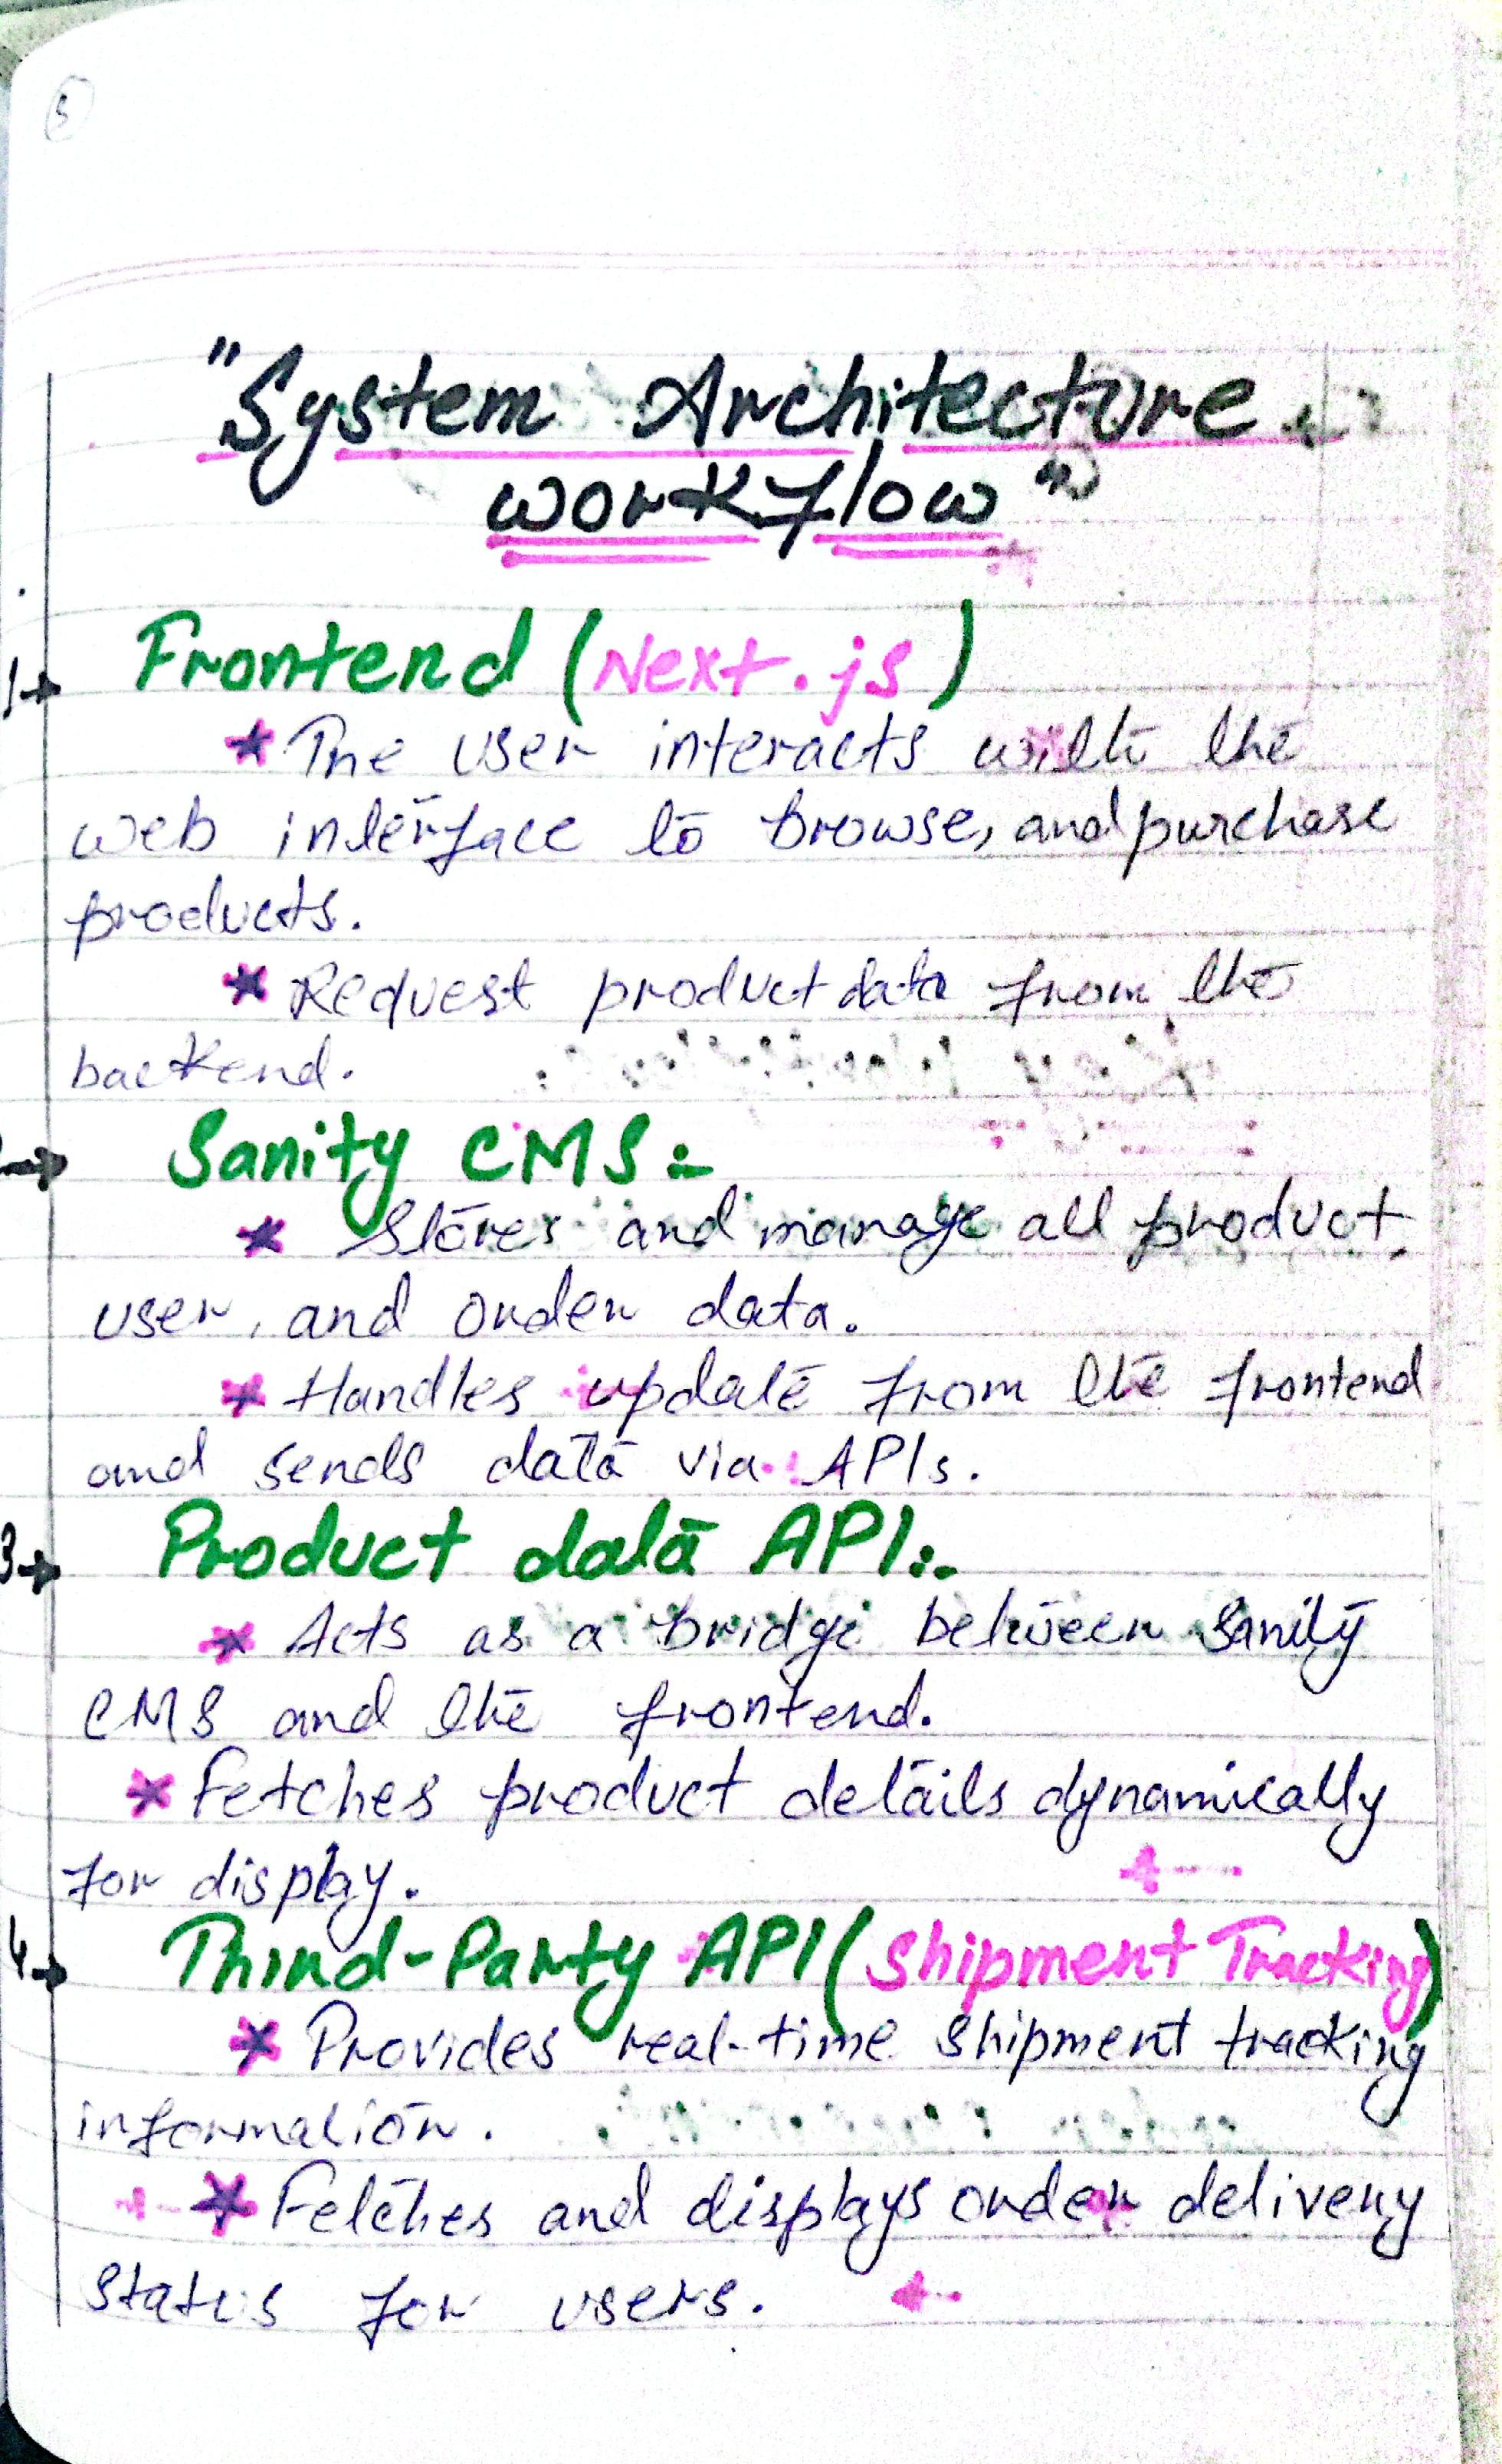 5
"System Architecture
workflow"
1→ Frontend (Next.js)
* The user interacts with the
web interface to browse, and purchase
products.
* Request product data from the
backend.
→ Sanity CMS:-
* Stores and manage all product,
user, and order data.
* Handles update from the frontend
and sends data via APIs.
3→ Product data API:-
* Acts as a bridge between Sanity
CMS and the frontend.
* Fetches product details dynamically
for display.
4→ Third-Party API (Shipment Tracking)
* Provides real-time shipment tracking
information.
* Fetches and displays order delivery
status for users.